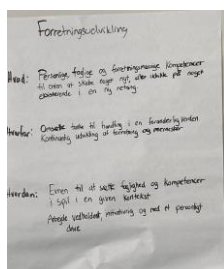 Forretningsudvikling
Hvad: Personlige, faglige og forretningsmæssige kompetencer
til evnen at skabe noget nyt, eller udvikle på noget
eksisterende i en ny retning.
Hvorfor: Omsætte tanke til handling i en foranderlig verden
Kontinuerlig udvikling af forretning og mennesker
Hvordan: Evnen til at sætte faglighed og kompetencer
i spil i en given kontekst
Arbejde vedholdent, og med et personligt
drive